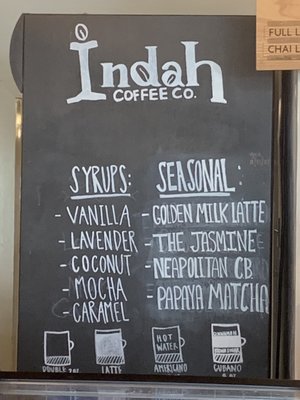 Indah
COFFEE CO.
FULL L
CHAI L
SYRUPS:
- VANILLA
- LAVENDER
- COCONUT
- MOCHA
- CARAMEL
SEASONAL:
- GOLDEN MILK LATTE
- THE JASMINE
- NEAPOLITAN CB
- PAPAYA MATCHA
HOT
WATER
DOUBLE 2 oz.
LATTE
AMERICANO
CUBANO